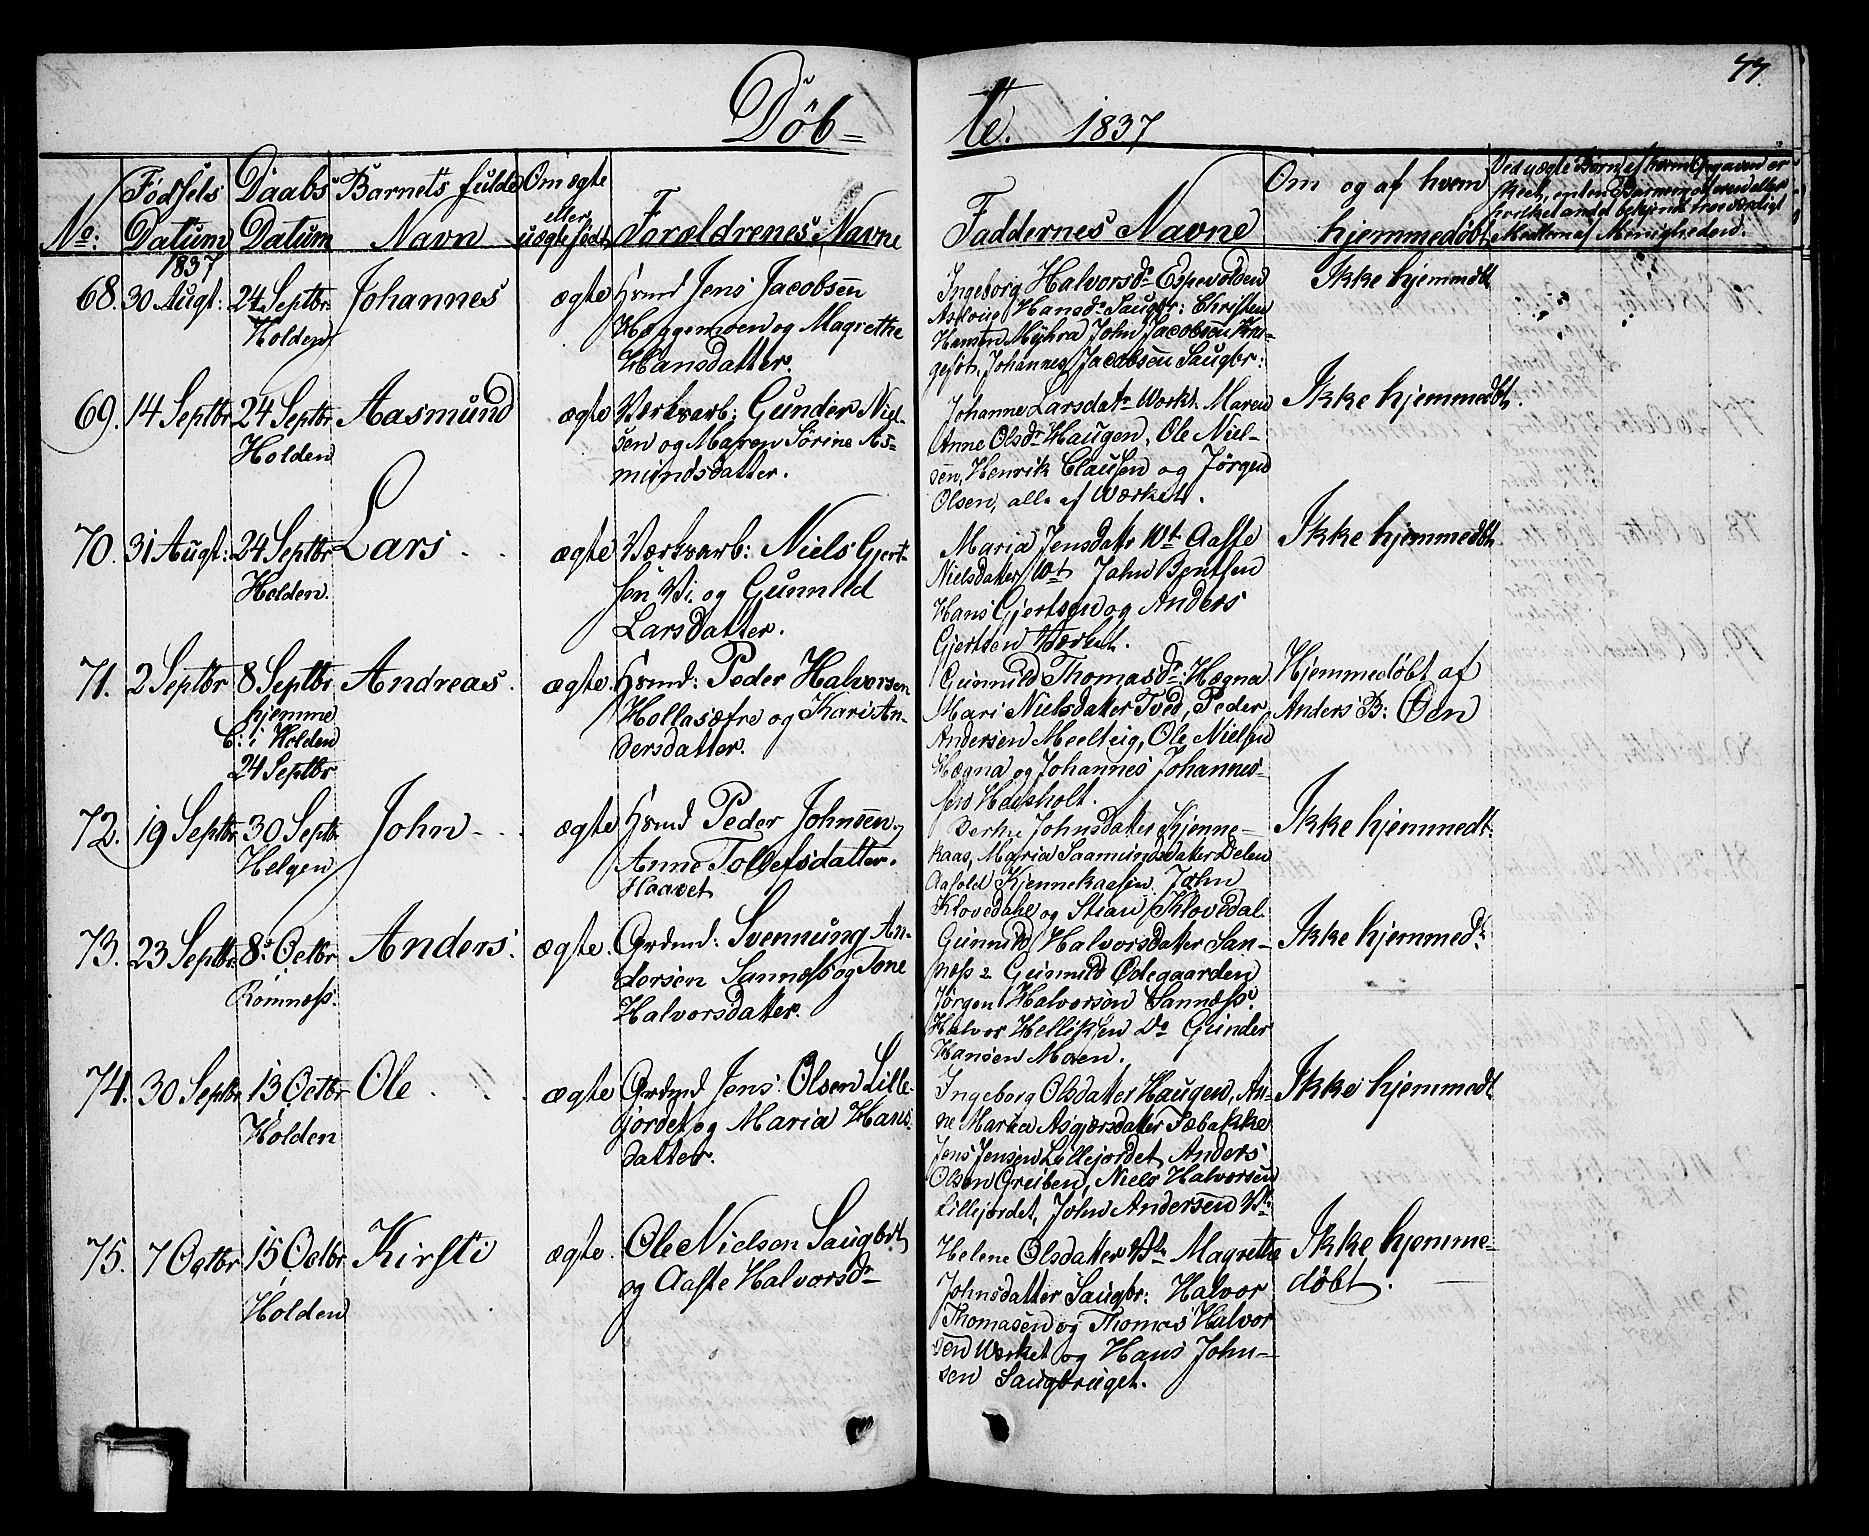 77.
Døb-
te. 1837
No:
Fødsels Datum
Daabs Datum
Barnets fulde Navn
Om ægte eller uægte født
Forældrenes Navne
Faddernes Navne
Om og af hvem hjemmedøbt
Ved uægte Børn af hvem Opgaven er
skeet, enten Barnemoderen eller
hvilket andet bekjendt troeværdigt
Medlem af Menigheden.
1837
68. 30 Augt: 24 Septbr Holden Johannes ægte
Hsmd Jens Jacobsen
Heggemoen og Magrethe
Hansdatter.
Ingeborg Halvorsdr Espevolden
Hansdr Saugbr: Christen
Hansen Myhra John Jacobsen
Johannes Jacobsen Saugbr:
Ikke hjemmedt
69. 14 Septbr 24 Septbr Holden Aasmund ægte
Værksarb: Gunder Niel-
sen og Maren Sørine As-
mundsdatter.
Johanne Larsdatr Værkt. Maren
Anne Olsdr Haugen, Ole Niel-
sen, Henrik Clausen og Jørgen
Olsen, alle af Wærket.
Ikke hjemmedøbt.
70. 31 Augt: 24 Septbr Holden Lars ægte
Værksarb: Niels Gjert-
sen Vi. og Gunnild
Larsdatter.
Maria Jensdatr Wt Aaste
Nielsdatter Wt John Bentsen
Hans Gjertsen og Anders
Gjertsen Værket.
Ikke hjemmedbt.
71. 2 Septbr 8 Septbr hjemme C: i Holden 24 Septbr Andreas. ægte.
Hsmd: Peder Halvorsen
Hollasætre og Kari An-
dersdatter.
Gunnild Thomasdr: Hægna
Mari Nielsdatter Tved, Peder
Andersen Meelteig, Ole Nielsen
Hægna og Johannes Johannes-
sen Hausholt.
Hjemmedøbt af
Anders B: Øen
72. 19 Septbr 30 Septr Helgen John ægte
Hsmd Peder Johnsen
Anne Tollefsdatter.
Haavet
Berthe Johnsdatter Kjenne-
kaas, Maria Saamundsdatter Delen
Aasold Kjennekaasen John
Klovedahl og Stian Klovedal
Ikke hjemmedt.
73. 23 Septbr 8de Octbr Romnæss. Anders. ægte.
Grdmd: Svennung An-
dersen Sannæss og Tone
Halvorsdatter.
Gunnild Halvorsdatter San-
næss 2. Gunnild Ødegaarden
Jørgen Halvorsen Sannæss.
Halvor Helliksen Do Gunder
Hansen Moen.
Ikke hjemmedt
74. 30 Septbr 13 Octbr Holden Ole ægte
Grdmd Jens Olsen Lille-
jordet og Maria Hans-
datter.
Ingeborg Olsdatter Haugen, An-
ne Maria Asgjersdatter Fæbakke
Jens Jensen Lillejordet, Anders
Olsen Greiben, Niels Halvorsen
Lillejordet, John Andersen
Ikke hjemmedt
75. 7 Octbr 15 Octbr Holden Kirsti ægte.
Ole Nielsen Saugbrt
og Aaste Halvorsdr
Helene Olsdatter Magrethe
Johnsdatter Saugbr: Halvor
Thomasen og Thomas Halvor-
sen Wærket og Hans John-
sen Saugbruget.
Ikke hjemme-
døbt.